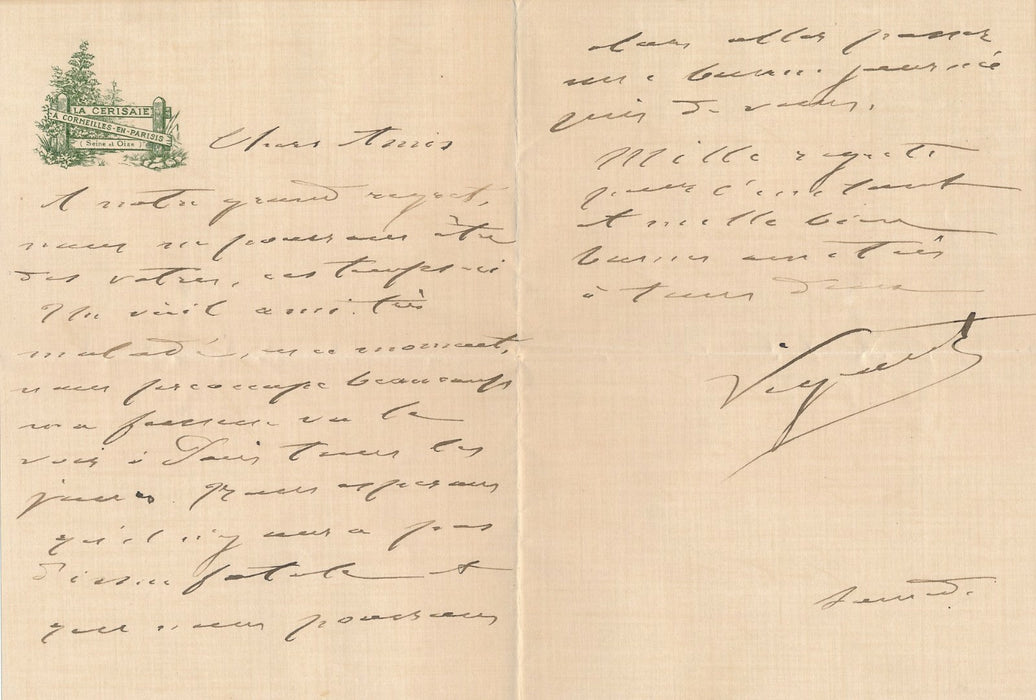 LA CERISAIE
A CORMEILLES-EN-PARISIS
(Seine et Oise)
Chers Amis
A notre grand regret,
nous ne pouvons être
des votres, ces temps-ci
Un vieil ami très
malade, en ce moment,
nous préoccupe beaucoup
ma femme va le
voir à Paris tous les
jours. Nous esperons
qu'il n'y aura pas
d'issue fatale et
que nous pourrons
alors aller passer
une bonne journée
près de vous.
Mille regrets
pour l'instant
et mille bien
bonnes amitiés
à tous deux
Samedi